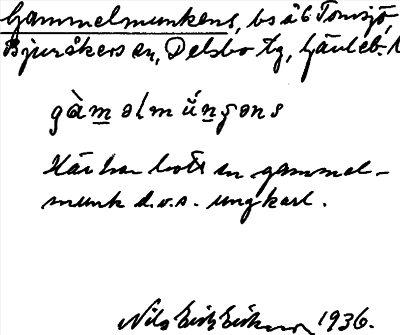 Gammelmunkens, bs å 6 Tomsjö,
Bjuråkers sn, Delsbo tg, Gävleb. l
gàməlmúŋgəns
Här har bott en gammel-
munk d.v.s. ungkarl.
Nils Erik Eriksson 1936.